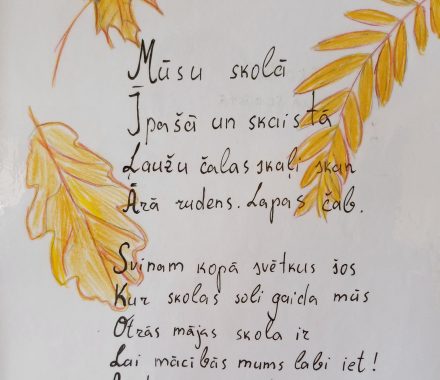 Mūsu skolā
Īpašā un skaistā
Ļaužu čalas skaļi skan
Ārā rudens. Lapas čab.
Svinam kopā svētkus šos
Kur skolas soli gaida mūs
Otrās mājas skola ir
Lai mācībās mums labi iet!